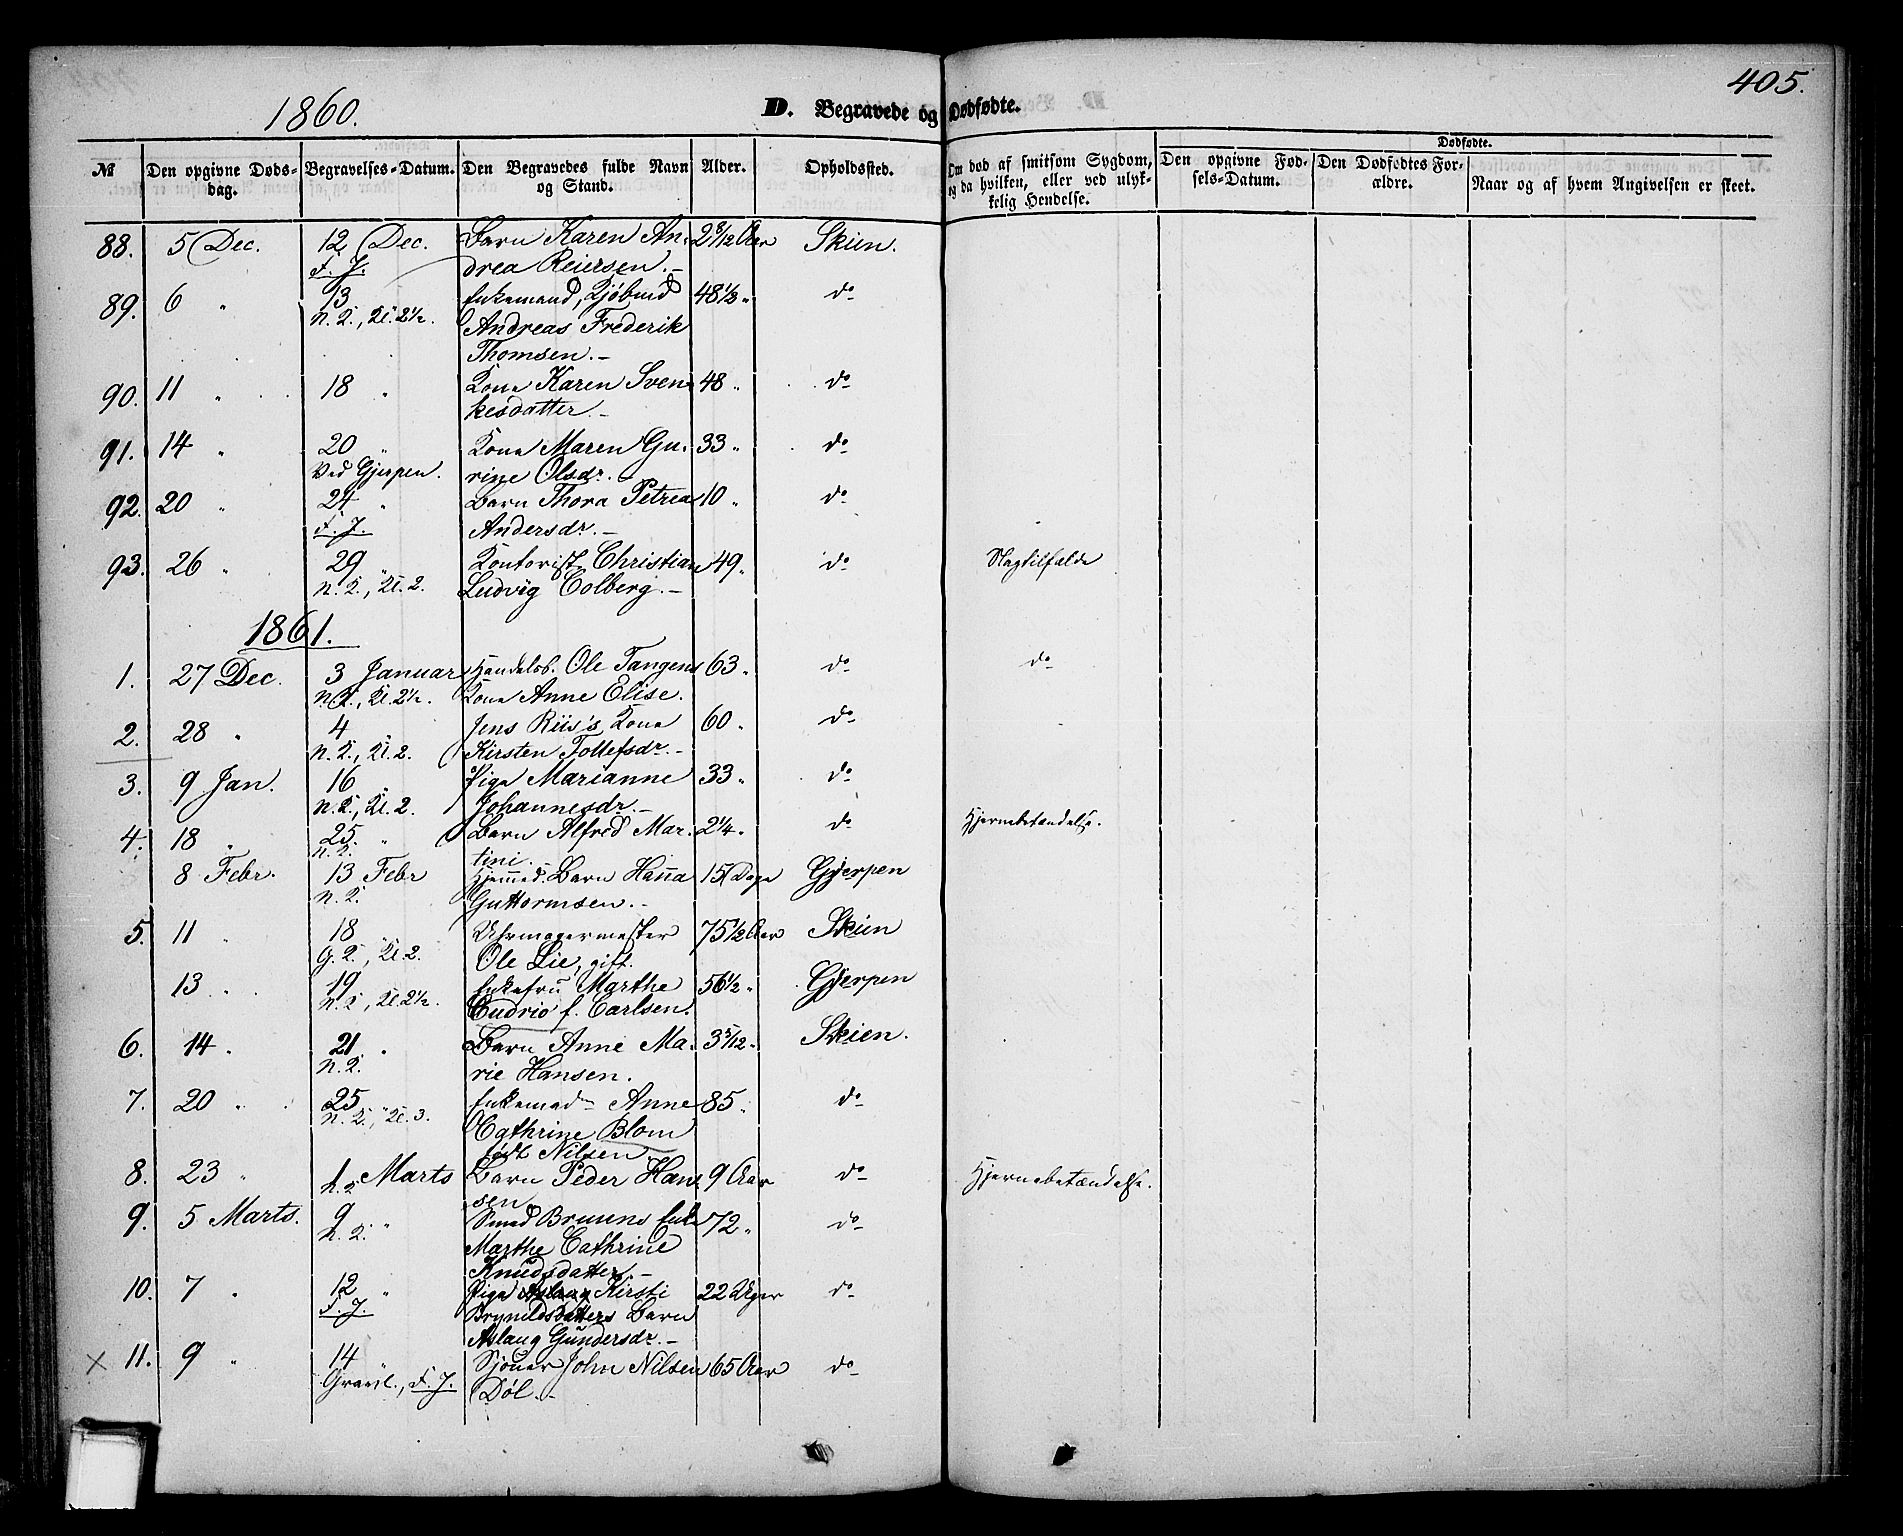 405.
1860.
D. Begravede og Dødfødte.
Dødfødte.
№ Den opgivne Døds-dag. Begravelses-Datum. Den Begravedes fulde Navn og Stand. Alder. Opholdssted. Om død af smitsom Sygdom, og da hvilken, eller ved ulyk-kelig Hendelse. Den opgivne Fød-sels-Datum. Den Dødfødtes For-ældre. Naar og af hvem Angivelsen er skeet.
88. 5 Dec. 12 Dec. Barn Karen An- 2 8/12 Aar Skien.
F. J. drea Reiersen.—
89. 6 " 13 " Enkemand, Kjøbmd 48 1/2 " do
N. K., Kl. 2½. Andreas Frederik
Thomsen.—
90. 11 " 18 " Kone Karen Sven- 48 " do
kesdatter.—
91. 14 " 20 " Kone Maren Gu- 33 " do
Ved Gjerpen. rine Olsdr.
92. 20 " 24 " Barn Thora Petrea 10 " do
F. J. Andersdr.—
93. 26 " 29 " Kontorist Christian 49 " do Slagtilfælde
N. K., Kl. 2. Ludvig Colberg.—
1861.
1. 27 Dec. 3 Januar Handelsb. Ole Tangens 63 " do do
N. K., Kl. 2½. Kone Anne Elise.
2. 28 " 4 " Jens Riis's Kone 60 " do
N. K., Kl. 2. Kirsten Tollefsdr.—
3. 9 Jan. 16 " Pige Marianne 33 " do
N. K., Kl. 2. Johannesdr.—
4. 18 " 25 " Barn Alfred Mar- 2 1/4 " do Hjernebetændelse.
N. K. tini.
8 Febr. 13 Febr Hjemmed. Barn Hanna 15 Dage Gjerpen
N. K. Guttormsen.—
5. 11 " 18 " Uhrmagermester 75 1/2 Aar Skien
G. K., Kl. 2. Ole Lie, gift.
13 " 19 " Enkefru Marthe 56 1/2 " Gjerpen
N. K., Kl. 2½. Cudrio f. Carlsen.
6. 14 " 21 " Barn Anne Ma- 3 5/12 " Skien.
N. K. rie Hansen.
7. 20 " 25 " Enkemad Anne 85 " do
N. K., Kl. 3. Cathrine Blom
født Nilsen.
8. 23 " 1 Marts Barn Peder Han- 9 Aar do Hjernebetændelse.
N. K. sen
9. 5 Marts. 9 " Smed Bruuns Enke 72 " do
N. K. Marthe Cathrine
Knudsdatter.—
10. 7 " 12 " Pige Kirsti 22 Uger do
F. J. Brynildsdatters Barn
Aslaug Gundersdr.—
× 11. 9 " 14 " Sjouer John Nilsen 65 Aar do
Gravl., F. J. Døl.—